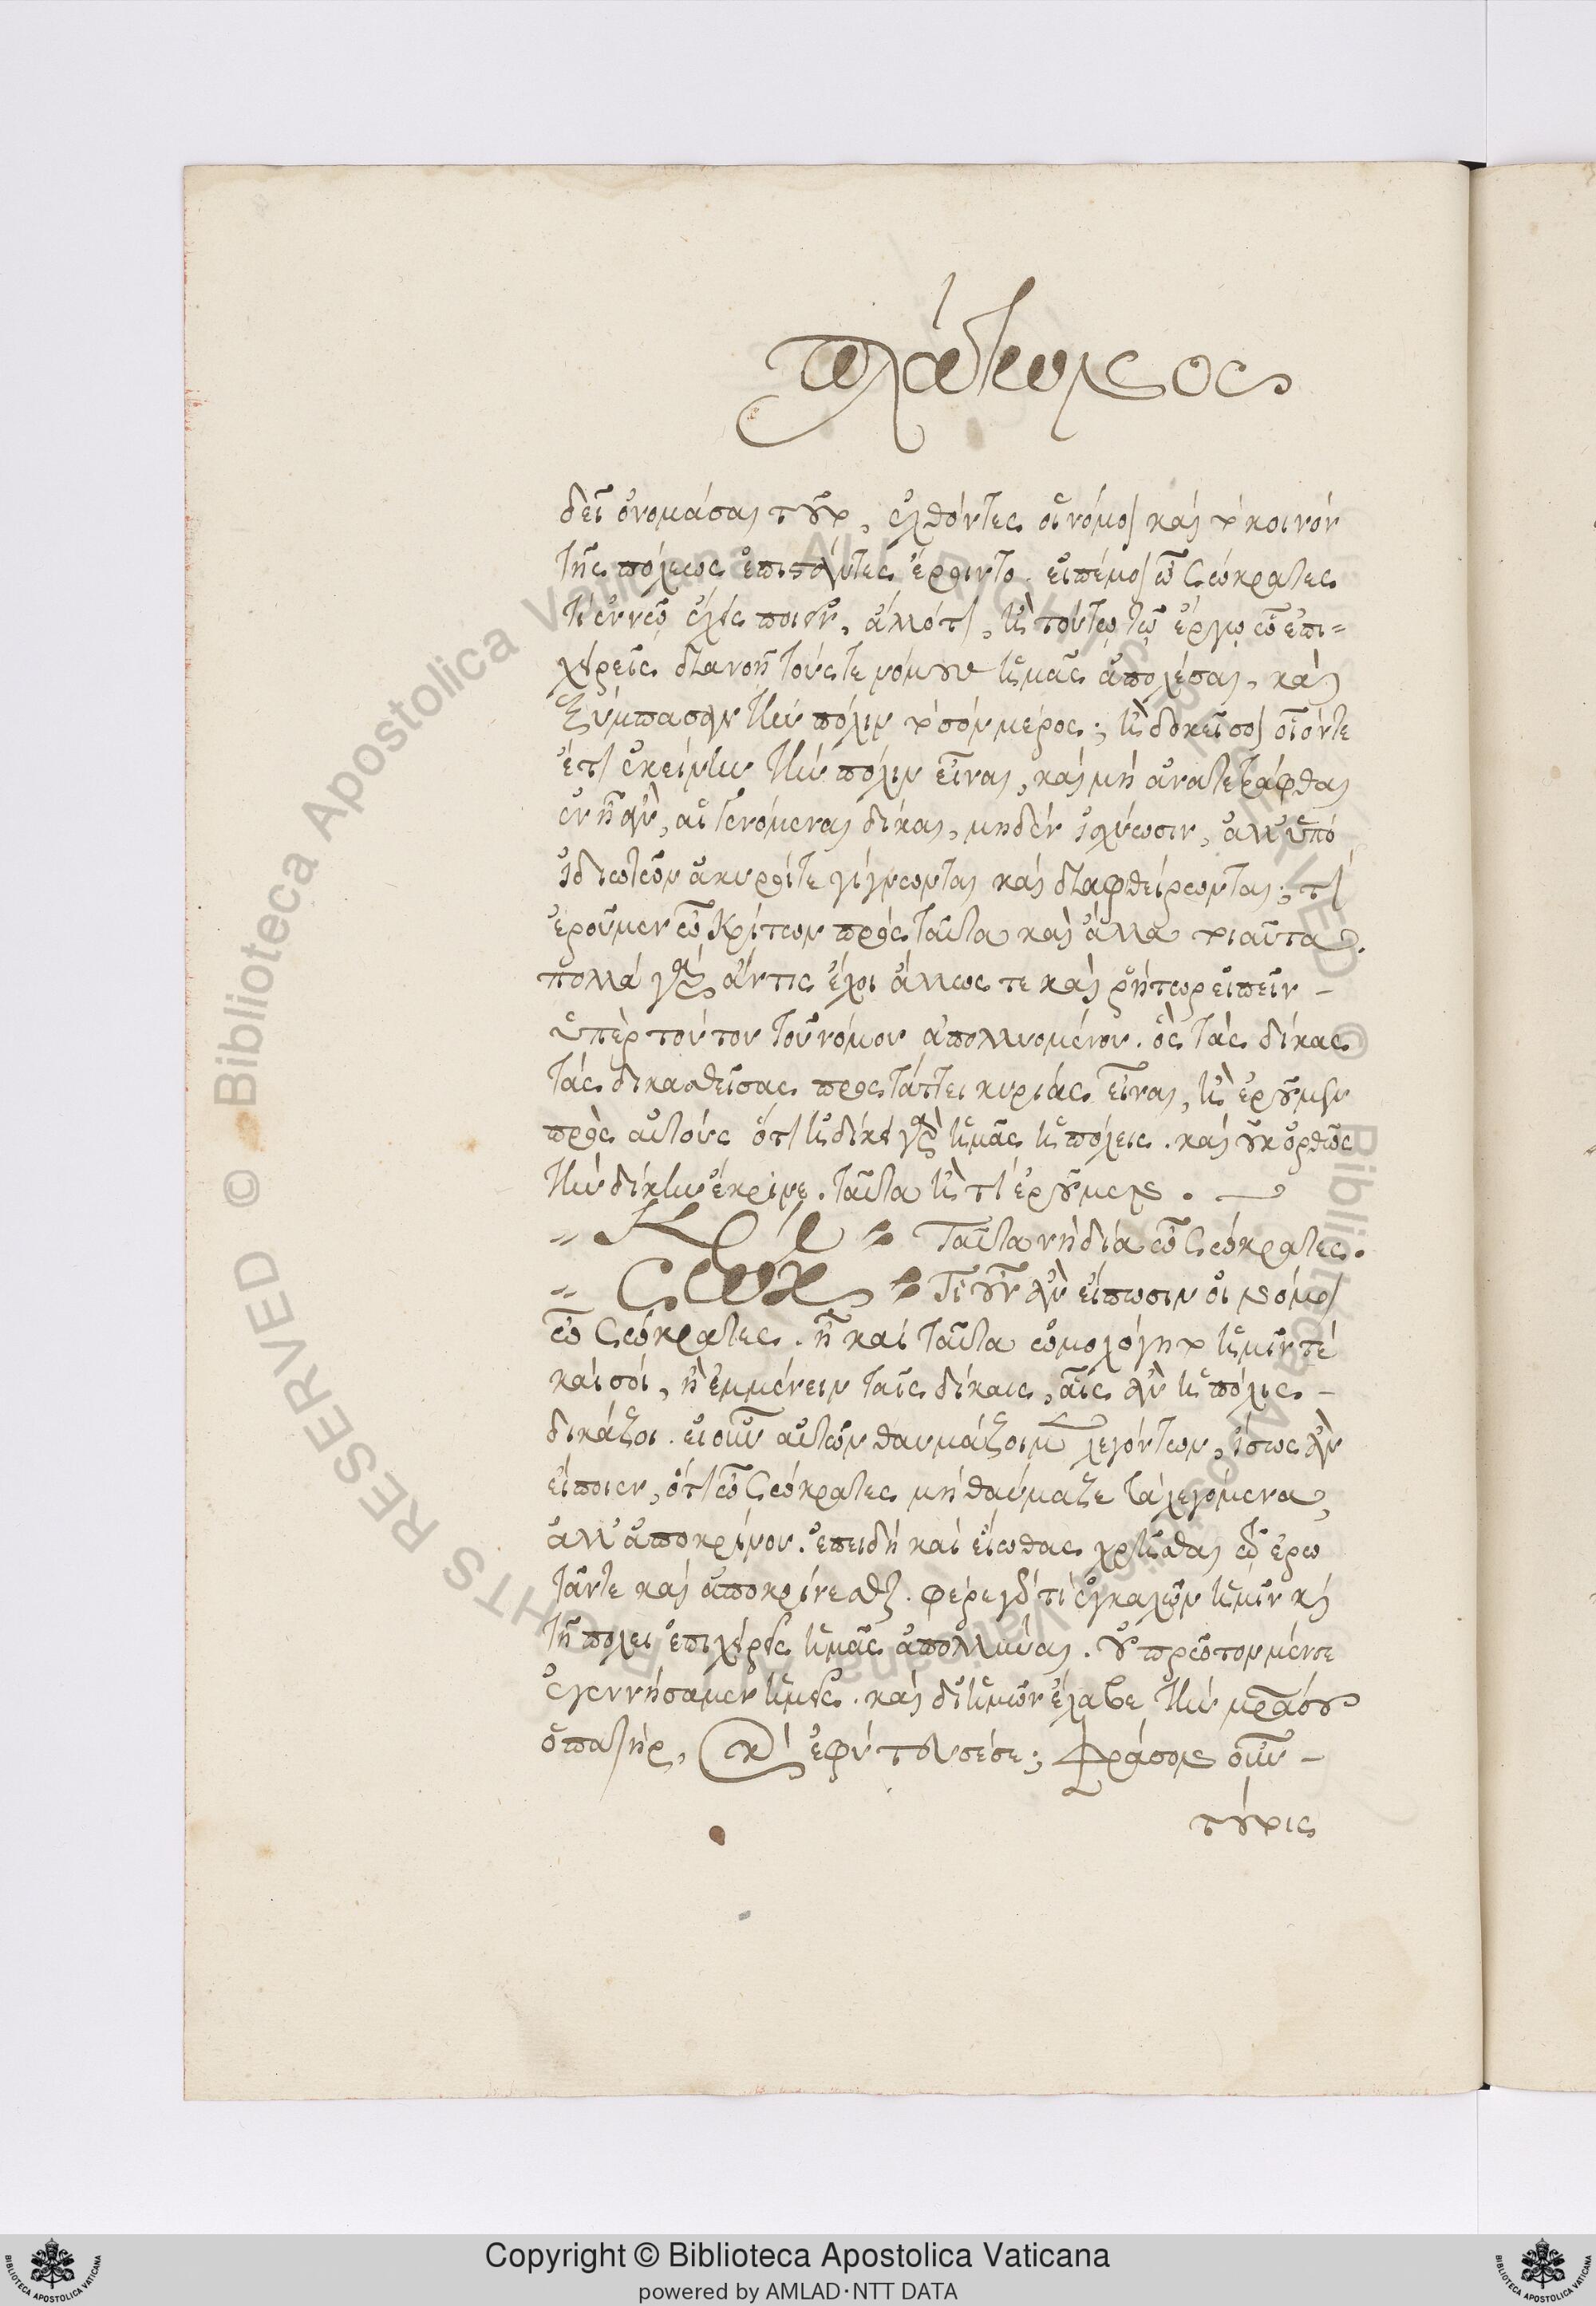 πλάτωνος
δεῖ ὀνομάσαι τοῦτο, ἐλθόντες οἱ νόμοι καὶ τὸ κοινὸν
τῆς πόλεως ἐπιστάντες ἔροιντο. εἰπέ μοι ὦ Σώκρατες
τί ἐν νῷ ἔχεις ποιεῖν, ἄλλό τι, ἢ τούτῳ τῷ ἔργῳ ᾧ ἐπι=
χειρεῖς διανοῇ τούς τε νόμους ἡμᾶς ἀπολέσαι, καὶ
ξύμπασαν τὴν πόλιν τὸ σὸν μέρος; ἢ δοκεῖ σοι οἷόν τε
ἔτι ἐκείνην τὴν πόλιν εἶναι, καὶ μὴ ἀνατετράφθαι
ἐν ᾗ ἂν, αἱ γενόμεναι δίκαι, μηδὲν ἰσχύωσιν, ἀλλ' ὑπὸ
ἰδιωτῶν ἄκυροί τε γίγνωνται καὶ διαφθείρωνται; τί
ἐροῦμεν ὦ Κρίτων πρὸς ταῦτα καὶ ἄλλα τοιαῦτα.
πολλὰ γὰρ ἄν τις ἔχοι ἄλλως τε καὶ ῥήτωρ εἰπεῖν -
ὑπὲρ τούτου τοῦ νόμου ἀπολλυομένου. ὃς τὰς δίκας
τὰς δικασθείσας προστάττει κυρίας εἶναι, ἢ ἐροῦμεν
πρὸς αὐτοὺς ὅτι ἠδίκει γὰρ ἡμᾶς ἡ πόλεις. καὶ οὐκ ὀρθῶς
τὴν δίκην ἔκρινε. ταῦτα ἢ τί ἐροῦμεν.
" Κρί " Ταῦτα νὴ δία ὦ Σώκρατες.
" Σωκ " Τί οὖν ἂν εἴπωσιν οἱ νόμοι
ὦ Σώκρατες. ἦ καὶ ταῦτα ὡμολόγητο ἡμῖν τέ
καὶ σοί, ἢ ἐμμένειν ταῖς δίκαις, αἷς ἂν ἡ πόλις -
δικάζοι. εἰ οὖν αὐτῶν θαυμάζοιμεν λεγόντων, ἴσως ἂν
εἴποιεν, ὅτι ὦ Σώκρατες μὴ θαύμαζε τὰ λεγόμενα,
ἀλλ' ἀποκρίνου. ἐπειδὴ καὶ εἴωθας χρῆσθαι τῷ ἐρω
τᾶν τε καὶ ἀποκρίνεσθαι. φέρε γὰρ τί ἐγκαλῶν ἡμῖν καὶ
τῇ πόλει ἐπιχειρεῖς ἡμᾶς ἀπολλύναι. οὐ πρῶτον μέν σε
ἐγεννήσαμεν ἡμεῖς. καὶ δι' ἡμῶν ἔλαβε τὴν μητέρα σου
ὁ πατήρ, καὶ ἐφύτευσέ σε; φράσον οὖν -
τούτοις
Copyright © Biblioteca Apostolica Vaticana
powered by AMLAD·NTT DATA